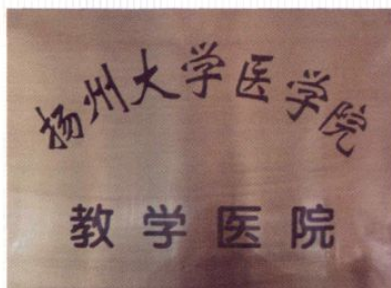 扬州大学医学院
教学医院